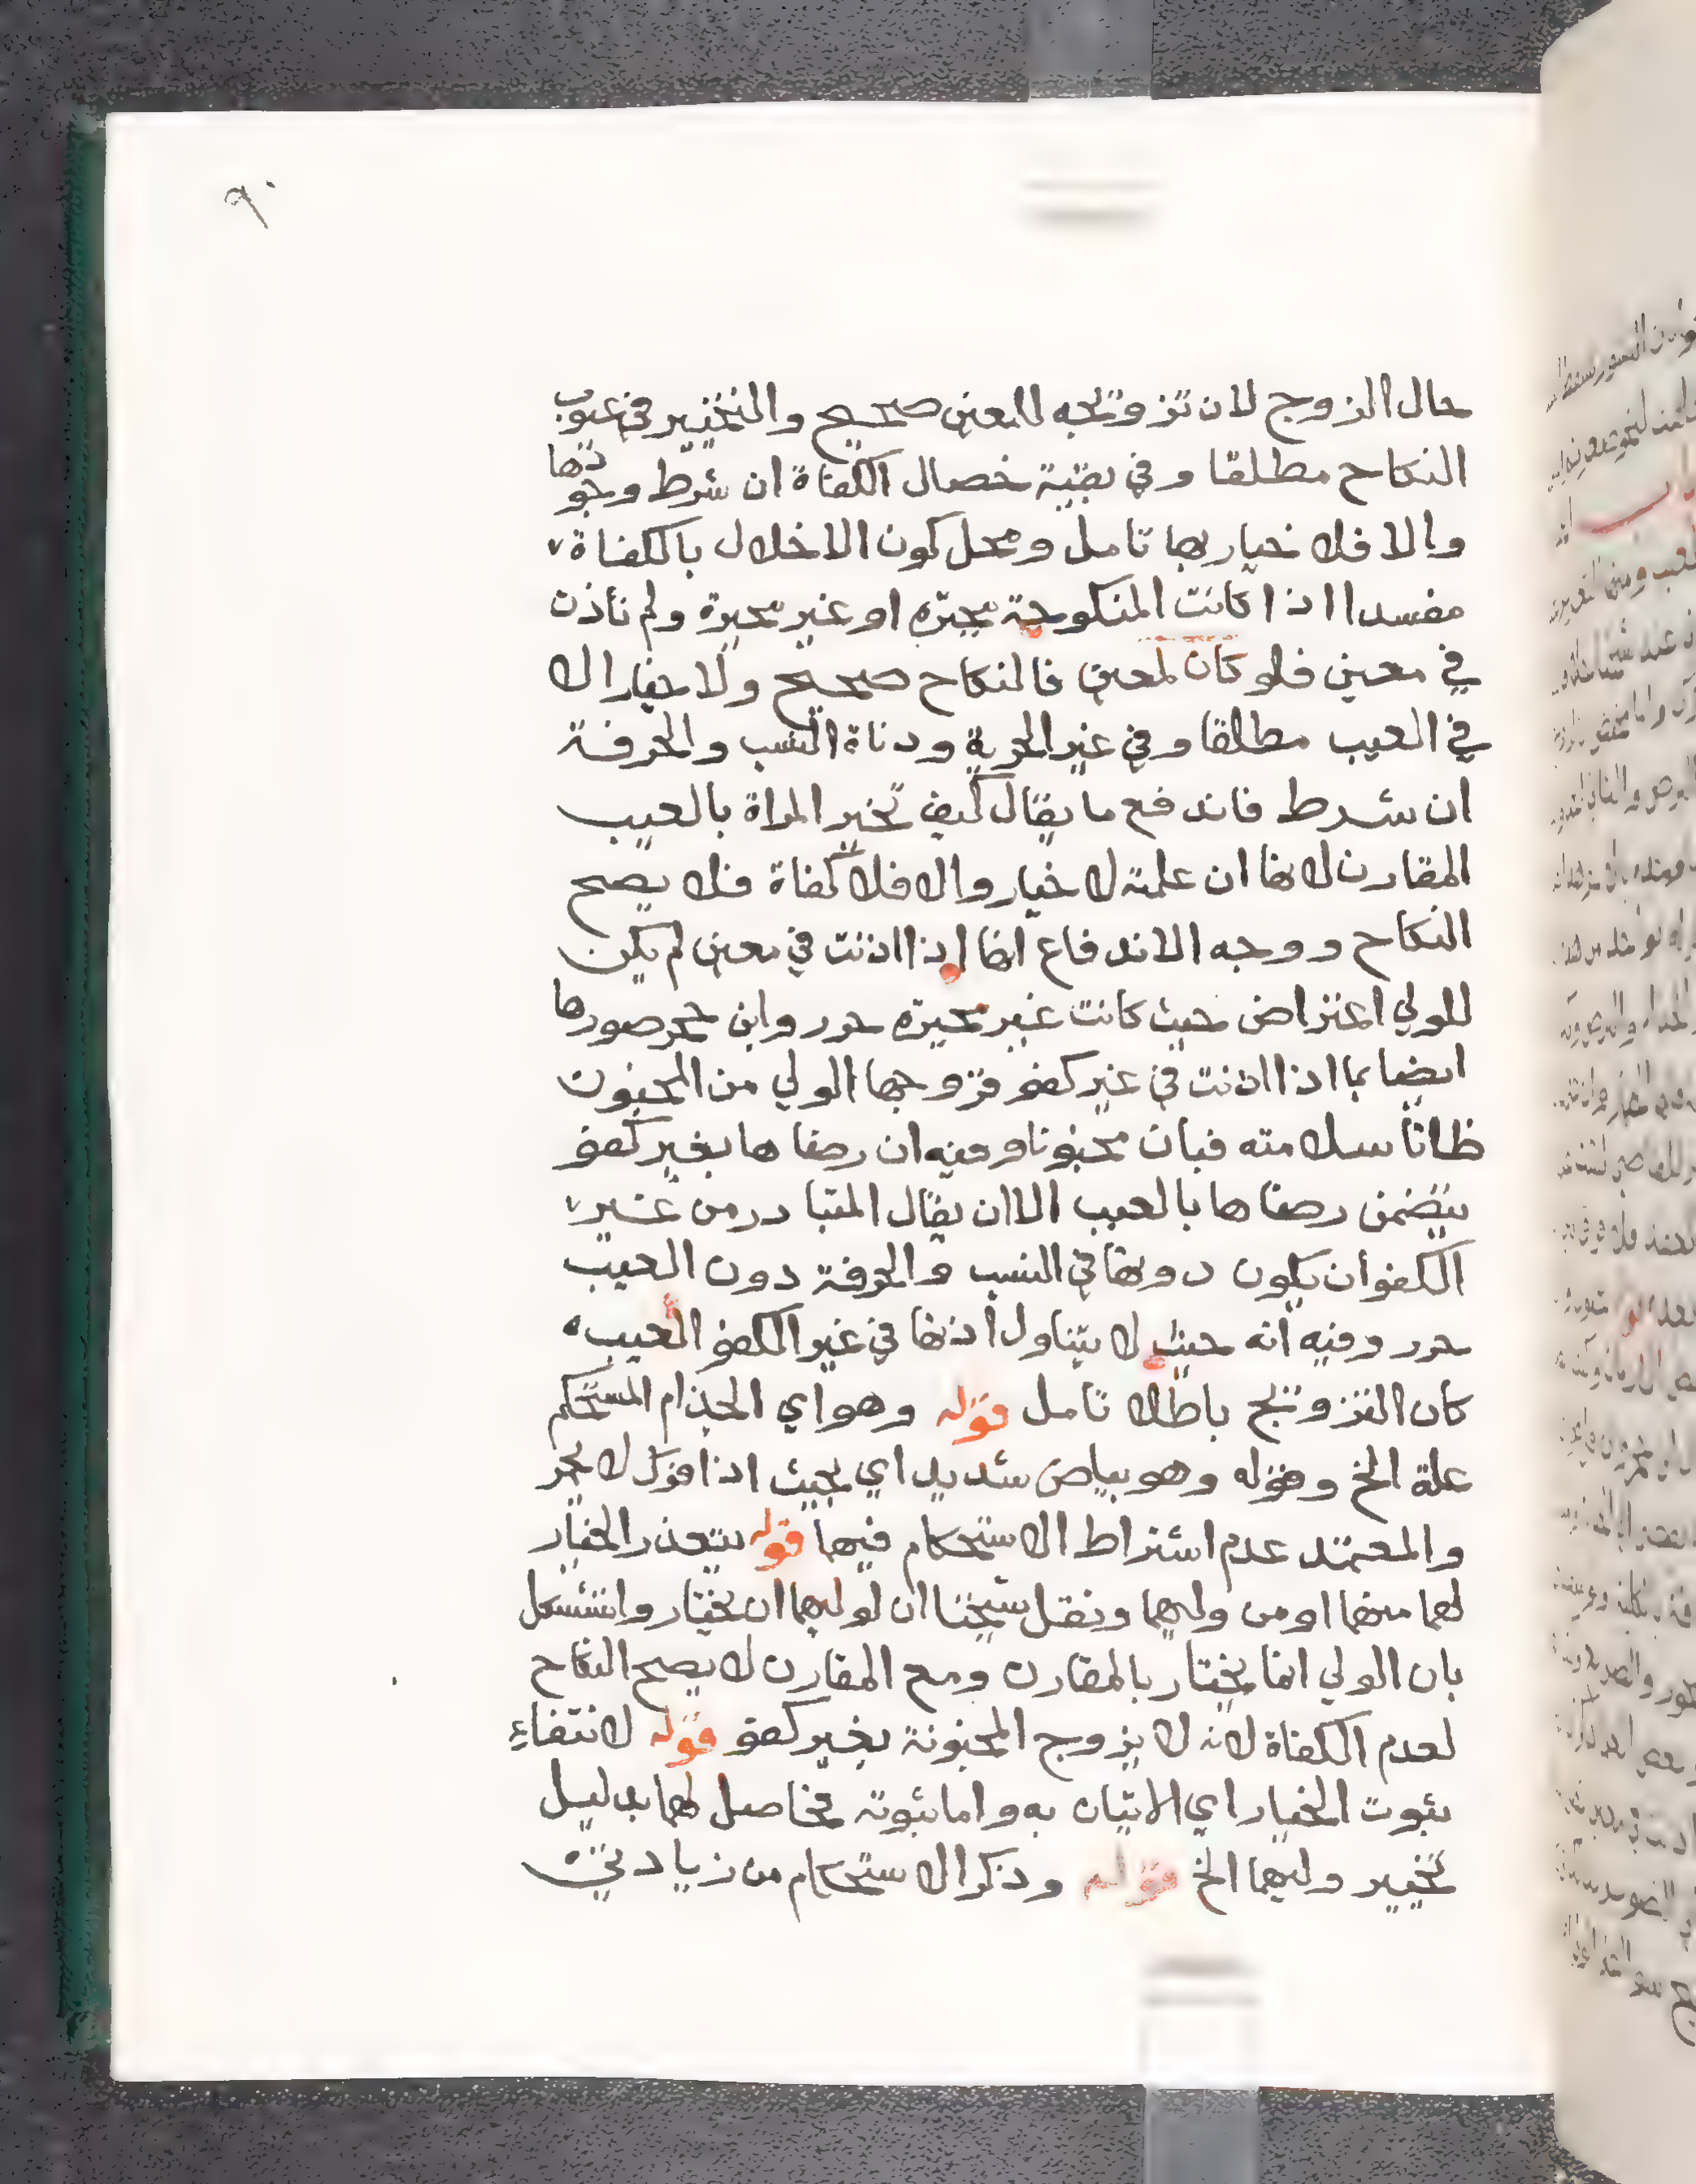 ٩٠
حال الزوج لان تزويجه للمعين صحيح والتخيير في عيوب
النكاح مطلقا وفي بقية خصال الكفاة ان شرط وجودها
والا فلا خيار بها تامل ومحل كون الاخلال بالكفاة
مفسدا اذا كانت المنكوحة مجبرة او غير مجبرة ولم تأذن
في معين فلو كان لمعين فالنكاح صحيح ولا خيار الا
في العيب مطلقا وفي غير الحرية ودناة النسب والحرفة
ان شرط فاندفع ما يقال كيف تخير المراة بالعيب
المقارن لانها ان علمت لا خيار والا فلا كفاة فلا يصح
النكاح ووجه الاندفاع انها اذا اذنت في معين لم يكن
للولي اعتراض حيث كانت غير مجبرة حرر وابن حجر صورها
ايضا بما اذا اذنت في غير كفو فزوجها الولي من المجنون
ظانا سلامته فبان مجنونا وفيه ان رضاها بغير كفو
يتضمن رضاها بالعيب الا ان يقال المتبادر من غير
الكفو أن يكون دونها في النسب والحرفة دون العيب
حرر وفيه أنه حيث لا يتناول أذنها في غير الكفو العيب
كان التزويج باطلا تامل قوله وهو اي الجذام المستحكم
علة الخ وقوله وهو بياض شديد اي بحيث اذا فرك لا يحمر
والمعتمد عدم اشتراط الاستحكام فيهما قوله يتعذر الخيار
لهما منهما او من وليهما ونقل شيخنا ان لوليهما ان يختار واستشكل
بان الولي انما يختار بالمقارن ومع المقارن لا يصح النكاح
لعدم الكفاة لانه لا يزوج المجنونة بغير كفو قوله لانتفاء
ثبوت الخيار اي الاتيان به واما ثبوته فحاصل لهما بدليل
تخيير وليهما الخ قوله وذكر الاستحكام من زيادتي